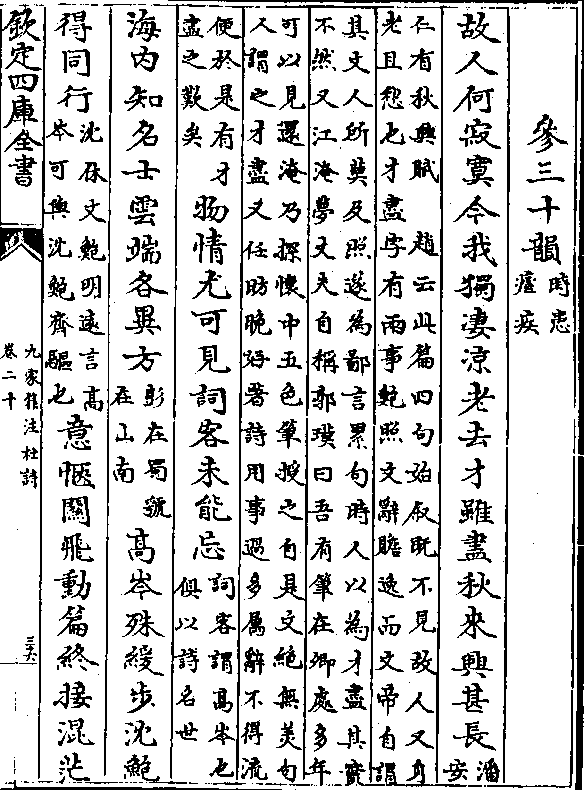 參三十韻時患
瘧疾
故人何寂寞今我獨凄凉老去才雖盡秋來興甚長潘
安
仁有秋興賦　趙云此篇四句始叙既不見故人又身
老且愁也才盡字有兩事鮑照文辭贍逸而文帝自謂
其文人所莫及照遂為鄙言累句時人以為才盡其實
不然又江淹夢丈夫自稱郭璞曰吾有筆在卿處多年
可以見還淹乃探懷中五色筆授之自是文絶無美句
人謂之才盡又任昉晚好著詩用事過多屬辭不得流
便於是有才
盡之歎矣
物情尤可見詞客未能忘詞客謂高岑也
俱以詩名世
海内知名士雲端各異方彭在蜀虢
在山南
高岑殊緩步沈鮑
得同行沈休文鮑明遠言高
岑可與沈鮑齊驅也
意愜關飛動篇終接混茫
欽定四庫全書
九家集注杜詩
卷二十
三六